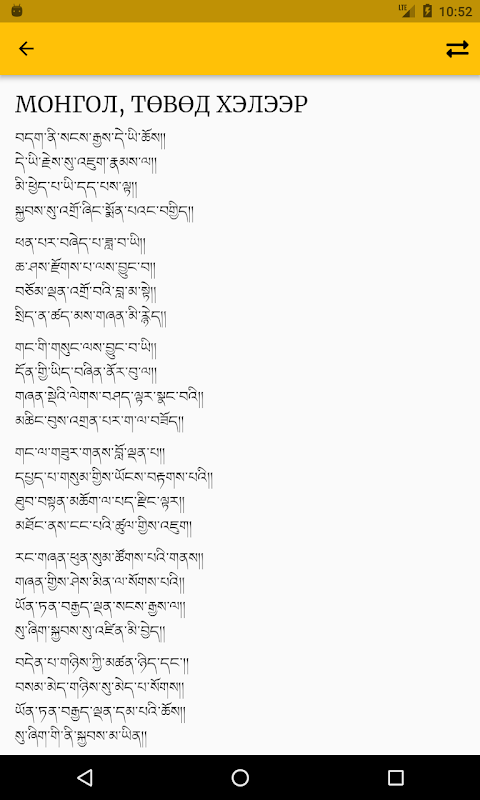 LTE 10:52
МОНГОЛ, ТӨВӨД ХЭЛЭЭР
བདག་ནི་སངས་རྒྱས་དེ་ཡི་ཆོས།།
དེ་ཡི་རྗེས་སུ་འཇུག་རྣམས་ལ།།
མི་ཕྱེད་པ་ཡི་དད་པས་ལྟ།།
སྐྱབས་སུ་འགྲོ་ཞིང་སྨོན་པའང་བགྱིད།།
ཕན་པར་བཞེད་པ་ཟླ་བ་ཡི།།
ཆ་ཤས་རྫོགས་པ་ལས་བྱུང་བ།།
བཅོམ་ལྡན་འགྲོ་བའི་བླ་མ་སྟེ།།
སྲིད་ན་ཚད་མས་གཞན་མི་རྙེད།།
གང་གི་གསུང་ལས་བྱུང་བ་ཡི།།
དོན་གྱི་ཡིད་བཞིན་ནོར་བུ་ལ།།
གཞན་སྡེའི་ལེགས་བཤད་ལྟར་སྣང་བའི།།
མཆིང་བུས་འགྲན་པར་ག་ལ་བཟོད།།
གང་ལ་གཟུར་གནས་བློ་ལྡན་པ།།
དཔྱད་པ་གསུམ་གྱིས་ཡོངས་བརྟགས་པའི།།
ཐུབ་བསྟན་མཆོག་ལ་པད་རྫིང་ལྟར།།
མཐོང་ནས་ངང་པའི་ཚུལ་གྱིས་འཇུག།
རང་གཞན་ཕུན་སུམ་ཚོགས་པའི་གནས།།
གཞན་གྱིས་ཤེས་མིན་ལ་སོགས་པའི།།
ཡོན་ཏན་བརྒྱད་ལྡན་སངས་རྒྱས་ལ།།
སུ་ཞིག་སྐྱབས་སུ་འཛིན་མི་བྱེད།།
བདེན་པ་གཉིས་ཀྱི་མཚན་ཉིད་དང་།།
བསམ་མེད་གཉིས་སུ་མེད་པ་སོགས།།
ཡོན་ཏན་བརྒྱད་ལྡན་དམ་པའི་ཆོས།།
སུ་ཞིག་གི་ནི་སྐྱབས་མ་ཡིན།།